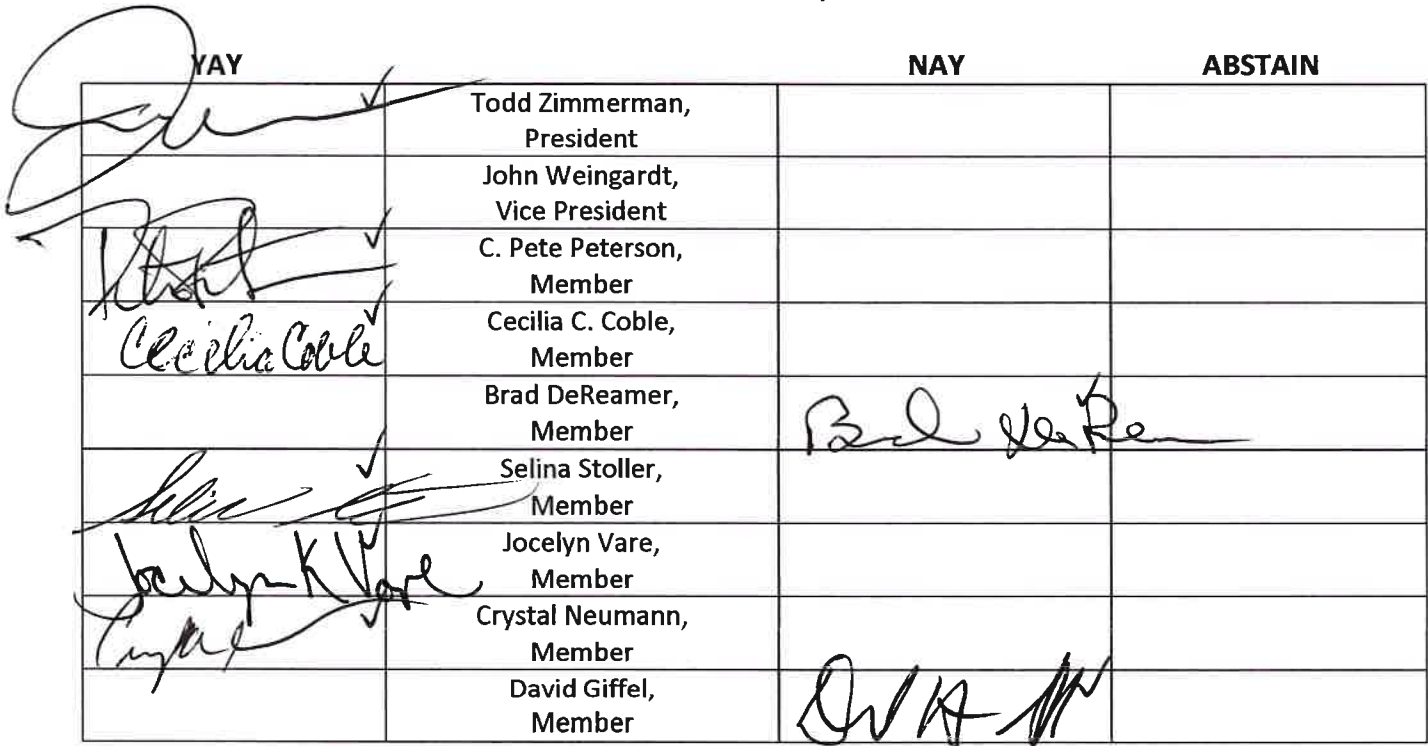 YAY NAY ABSTAIN
Todd Zimmerman,
President
John Weingardt,
Vice President
C. Pete Peterson,
Member
Cecilia Coble
Cecilia C. Coble,
Member
Brad DeReamer,
Member
Selina Stoller,
Member
Jocelyn K Vare
Jocelyn Vare,
Member
Crystal Neumann,
Member
David Giffel,
Member